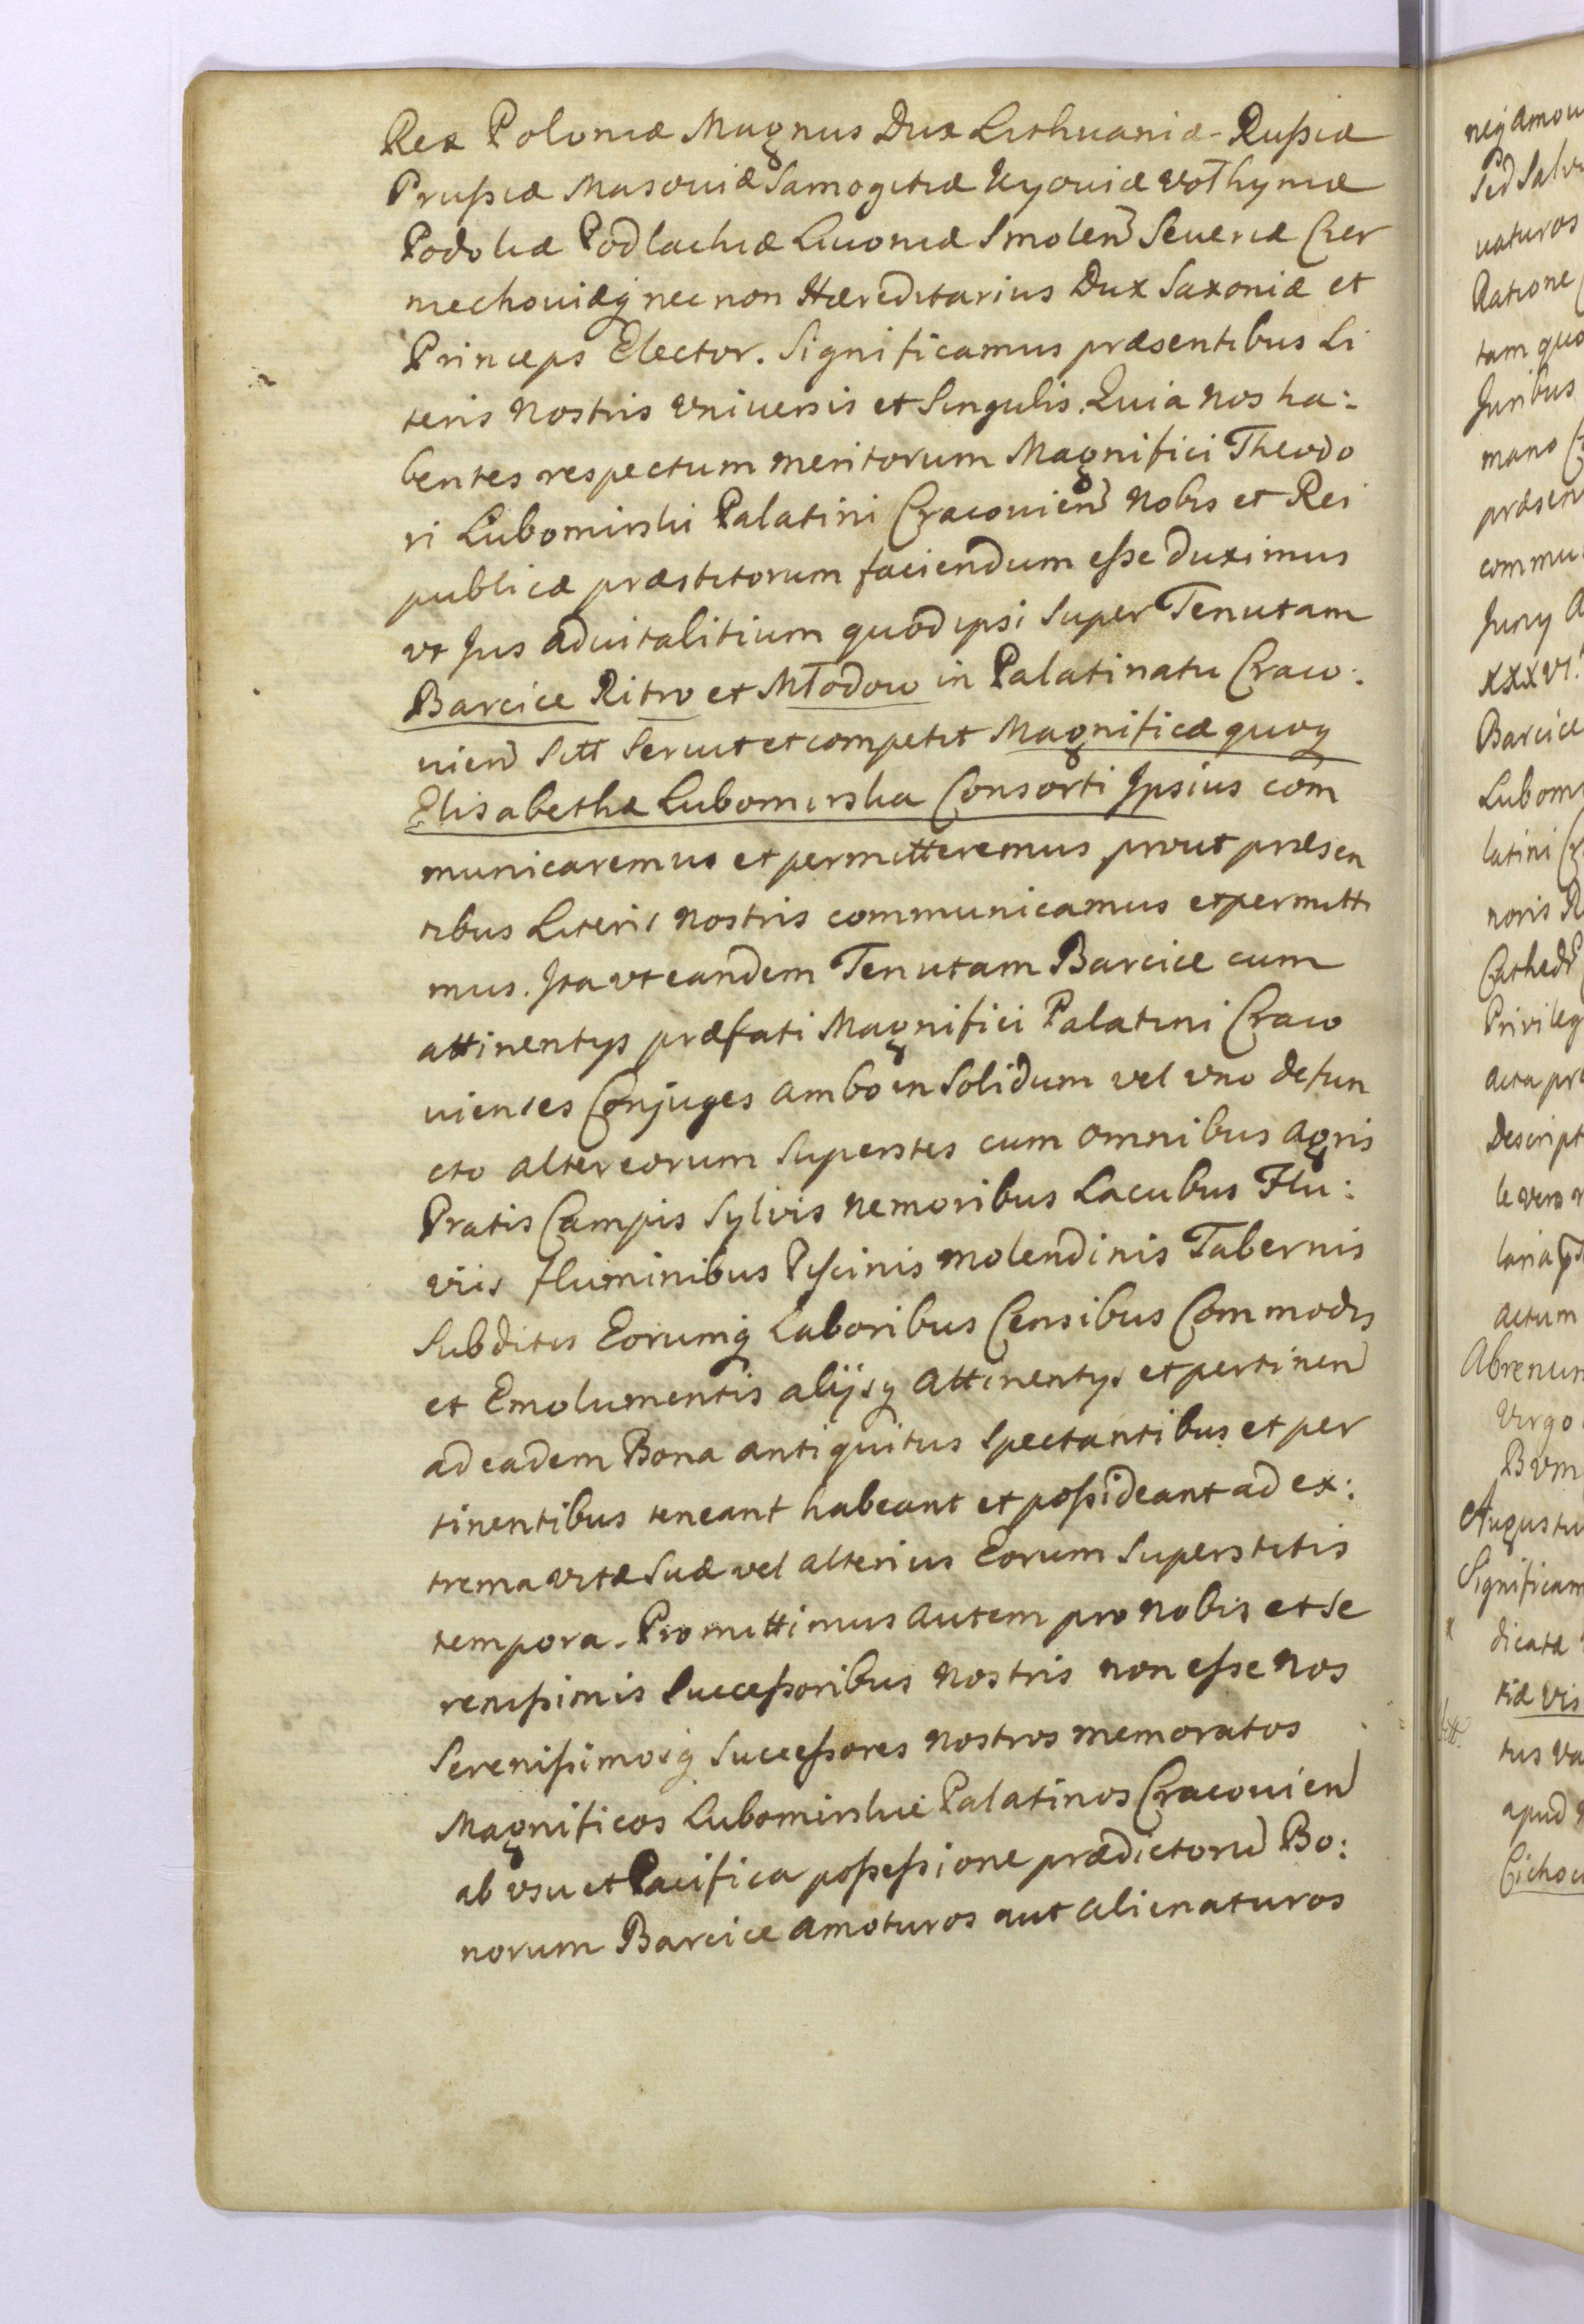 Rex Poloniæ Magnus Dux Lithuaniæ Rußiæ
Prußiæ Masouiæ Samogitiæ Kyouiæ Vołhyniæ
Podoliæ Podlachiæ Liuoniæ Smolen Seueriæ Czer
niechouiæq nec non Hæreditarius Dux Saxoniæ et
Princeps Elector. Significamus præsentibus Li
teris Nostris Vniuersis et Singulis. Quia Nos ha:
bentes respectum meritorum Magnifici Theodo
ri Lubomirski Palatini Cracouien Nobis et Rei
publicæ præstitorum faciendum eße duximus
vt Jus aduitalitium quod ipsi super Tenutam
Barcice Ritro et Młodow in Palatinatu Craco:
uien sitt seruit et competit Magnificæ quoq
Elisabethæ Lubomirska Consorti Ipsius com
municaremus et permitteremus prout præsen
tibus Literis Nostris communicamus et permitti
mus. Ita vt eandem Tenutam Barcice cum
attinentys præfati Magnifici Palatini Craco
uienses Conjuges ambo in Solidum vel vno defun
cto alter eorum Superstes cum omnibus Agris
Pratis Campis Sylvis Nemoribus Lacubus Flu:
viis Fluminibus Piscinis Molendinis Tabernis
Subditis Eorumq Laboribus Censibus Commodis
et Emolumentis alijsq Attinentys et pertinen
ad eadem Bona antiquitus spectantibus et per
tinentibus teneant habeant et poßideant ad ex:
trema vitæ suæ vel alterius Eorum Superstitis
tempora. Promittimus autem pro Nobis et Se
renißimis Succeßoribus Nostris non eße Nos
Serenißimosq Succeßores Nostros memoratos
Magnificos Lubomirskie Palatinos Cracouien
ab vsu et Pacifica poßeßione prædictoru Bo:
norum Barcice amoturos aut alienaturos
neq amou
Sed Salv
uaturos
Ratione
tam quo
Juribus
mano
præsen
commu
Juny A
XXXVI.
Barcice
Lubom
latini
noris R
Cathed
Privileg
acta pr
Descript
le vero
laria
actum
Abrenun
Virgo
Bvm
Augustu
Significam
dicatæ
tiæ vis
tus va
apud
Cichow